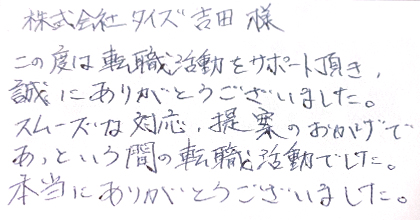 株式会社タイズ吉田様
この度は転職活動をサポート頂き,
誠にありがとうございました。
スムーズな対応,提案のおかげで
あっという間の転職活動でした。
本当にありがとうございました。